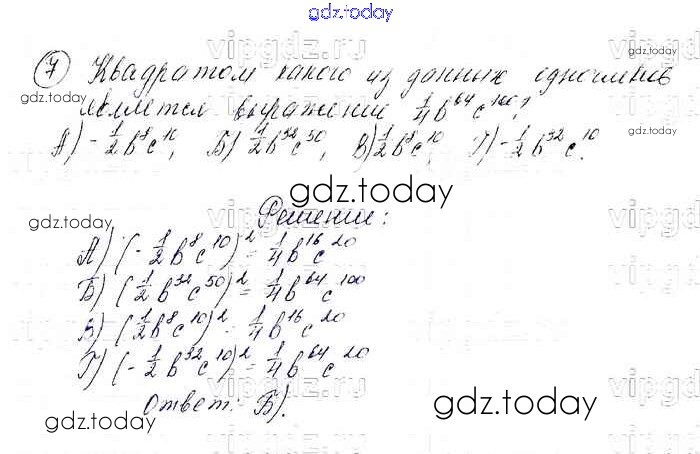 gdz.today
vipgdz.ru vipgdz.ru
⑦ Квадратом какого из данных одночленов
gdz.today
является выражение 1/4 b^64 c^100?
А) -1/2 b^8 c^10, Б) 1/2 b^32 c^50, В) 1/2 b^8 c^10, Г) -1/2 b^32 c^10.
gdz.today
gdz.today
Решение:
А) (-1/2 b^8 c^10)^2 = 1/4 b^16 c^20
Б) (1/2 b^32 c^50)^2 = 1/4 b^64 c^100
В) (1/2 b^8 c^10)^2 = 1/4 b^16 c^20
Г) (-1/2 b^32 c^10)^2 = 1/4 b^64 c^20
Ответ: Б).
gdz.today
gdz.today